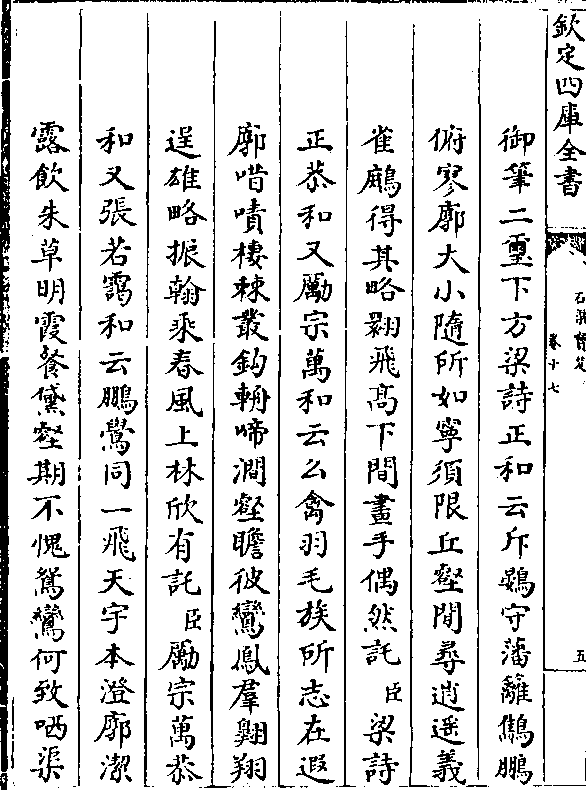 欽定四庫全書
石渠寶笈
卷十七
五
御筆二璽下方梁詩正和云斥鷃守藩籬鷦鵬
俯寥廓大小隨所如寧須限丘壑間尋逍遥義
雀鷉得其略翺飛髙下間畫手偶然託臣梁詩
正恭和又勵宗萬和云么禽羽毛族所志在遐
廓唶嘖棲棘叢鈎輈啼澗壑瞻彼鸞鳯羣翺翔
逞雄略振翰乘春風上林欣有託臣勵宗萬恭
和又張若靄和云鵬鷽同一飛天宇本澄廓潔
露飲朱草明霞餐黛壑期不愧鵷鸞何致哂渠